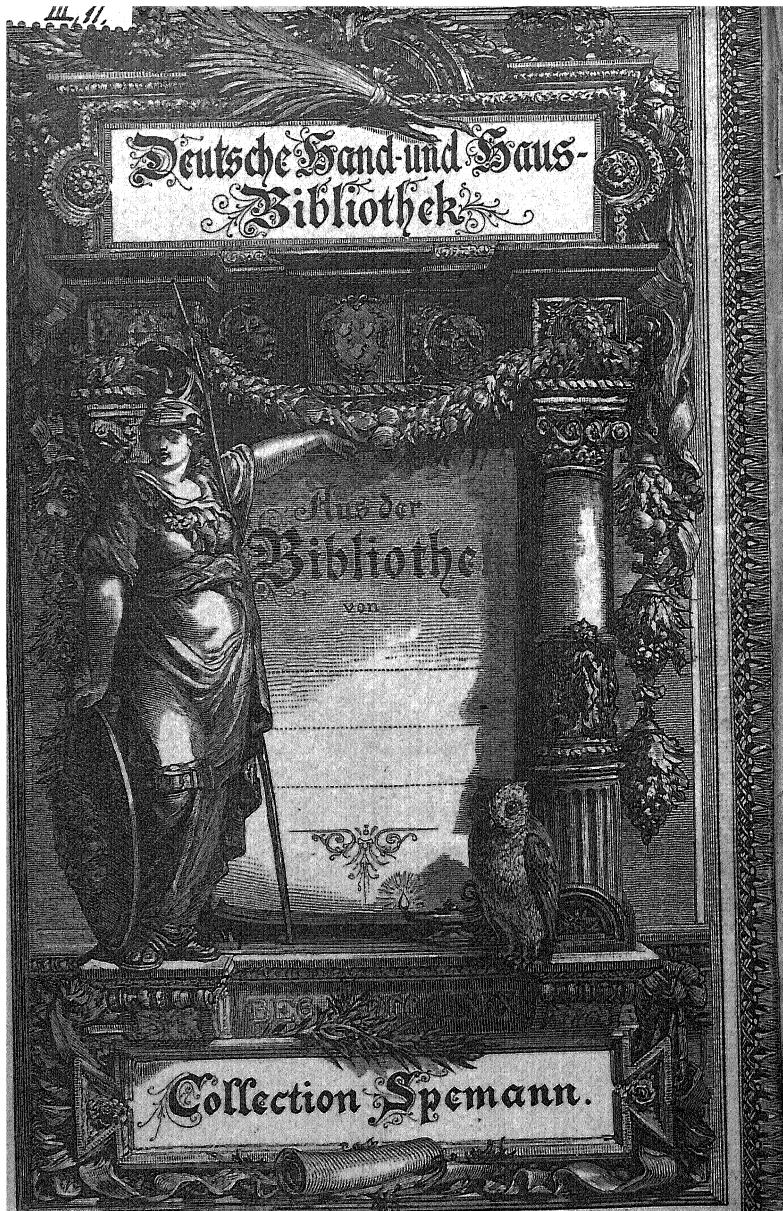 III, 11.
Deutsche Hand- und Haus-
Bibliothek
Aus der
Bibliothe
von
Collection Spemann.